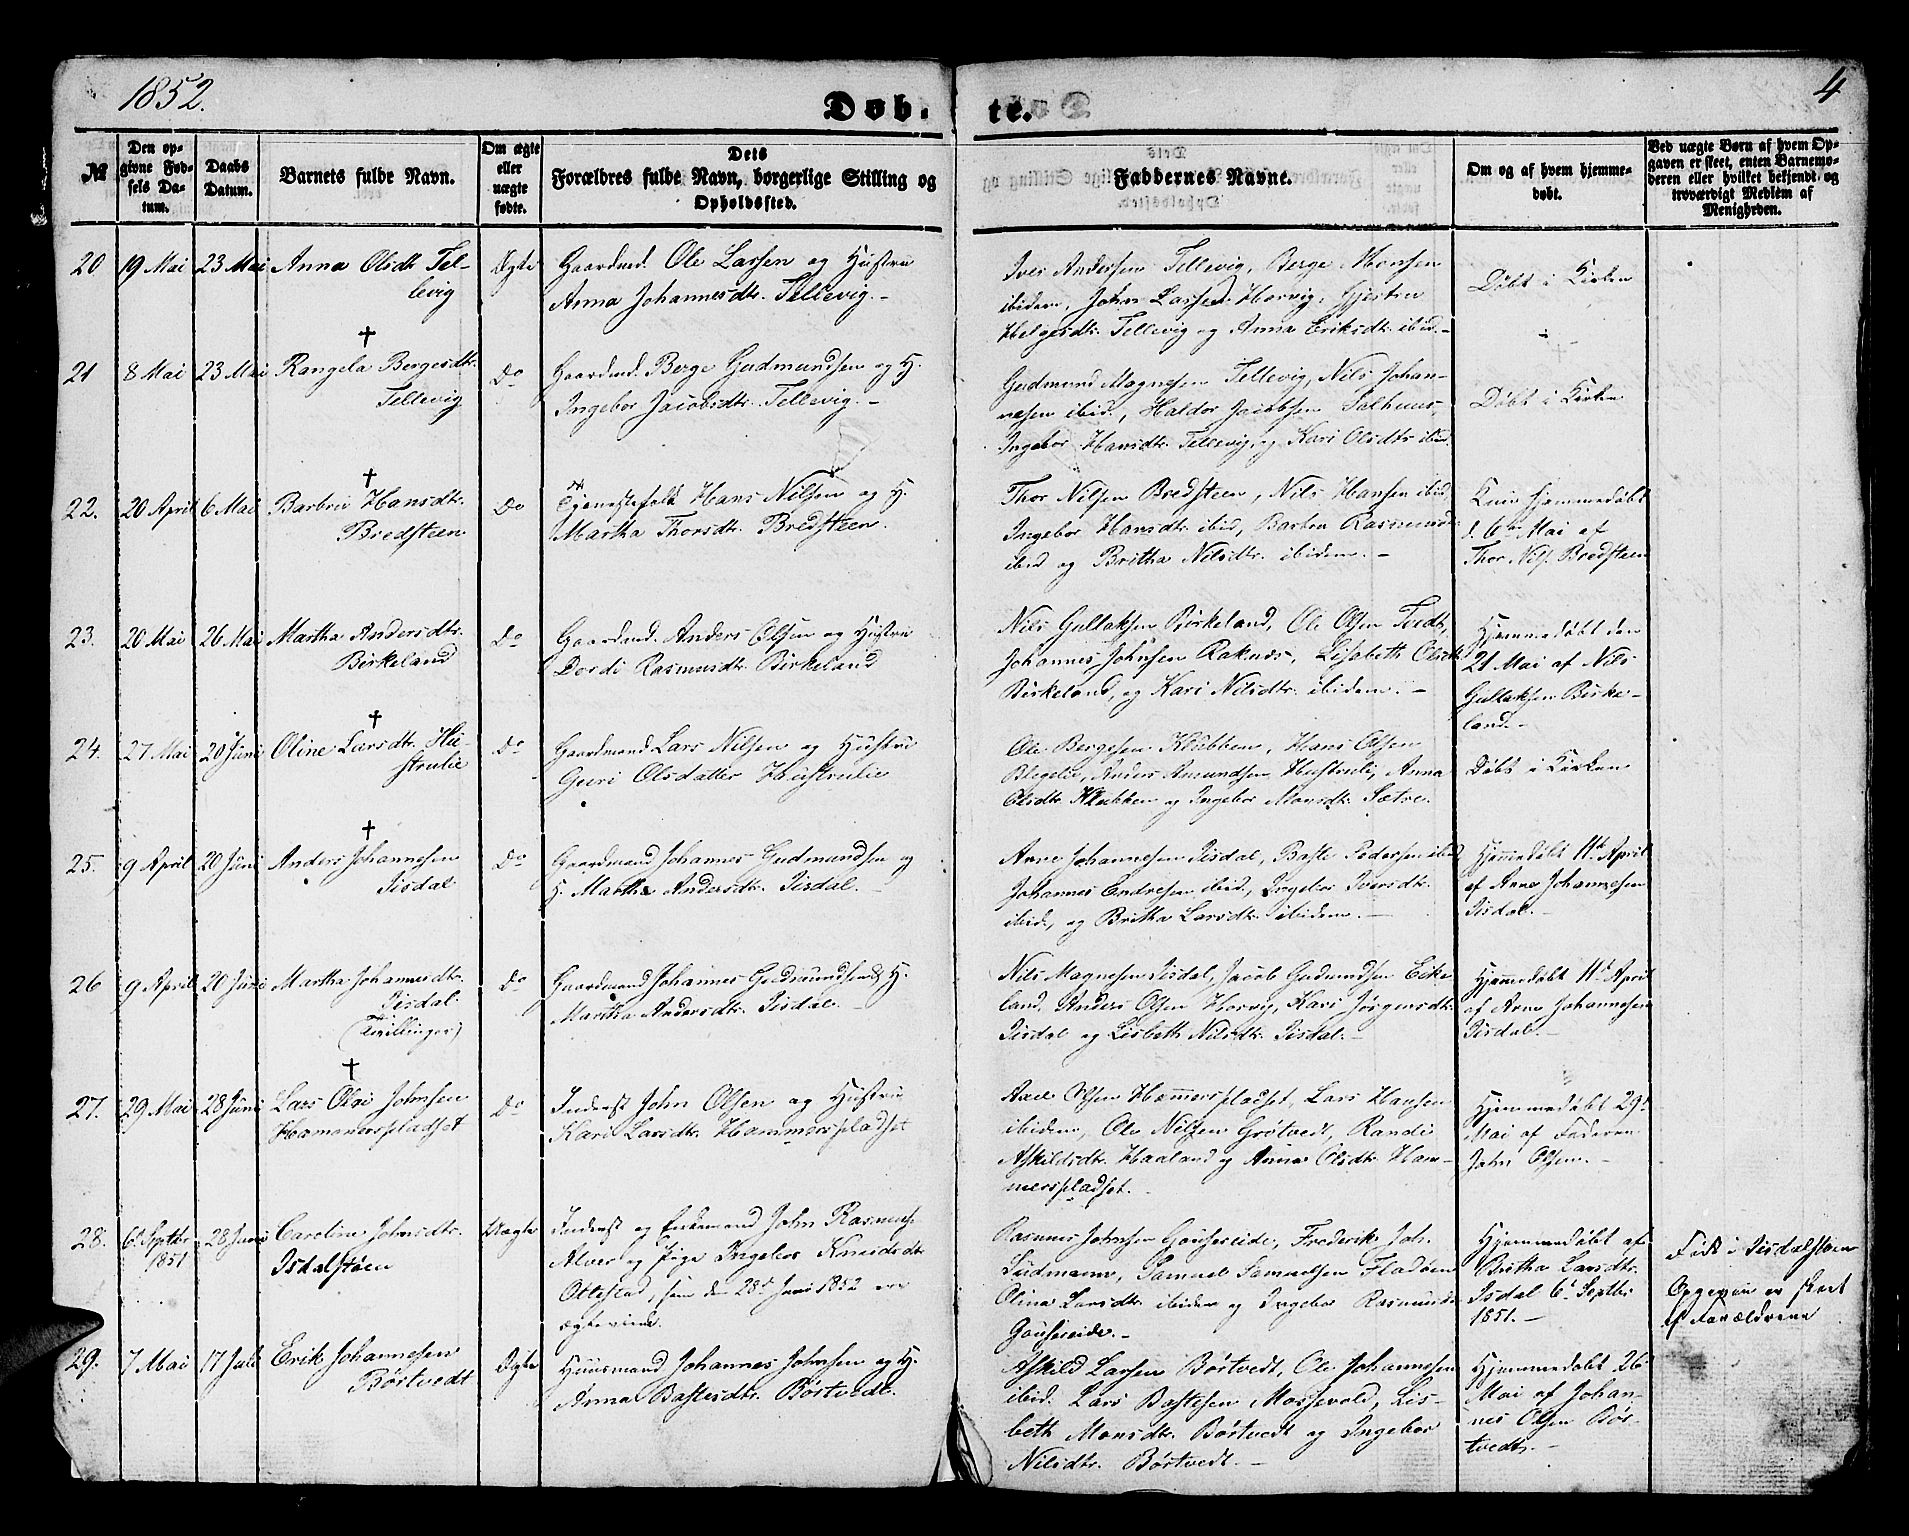 1852.
Døb-
te.
4
№
Den op-
givne Fød-
sels Da-
tum.
Daabs
Datum.
Barnets fulde Navn.
Om ægte
eller
uægte
fødte.
Dets
Forældres fulde Navn, borgerlige Stilling og
Opholdssted.
Faddernes Navne.
Om og af hvem hjemme-
døbt.
Ved uægte Børn af hvem Op-
gaven er skeet, enten Barnemo-
deren eller hvilket bekjendt og
troværdigt Medlem af
Menigheden.
20
19 Mai
23 Mai
Anna Olsdt Tel-
levig
Ægte
Gaardmd. Ole Larsen og Hustru
Anna Johannesdtr. Tellevig.-
Iver Andersen Tellevig, Berge Monsen
ibidem, John Larsen Horvig, Gjertru
Helgesdtr. Tellevig og Anna Eriksdtr. ibid.-
Døbt i Kirken
21
8 Mai
23 Mai
†
Rangela Bergesdtr.
Tellevig
Do
Gaardmd. Berge Gudmundsen og H.
Ingebor Jacobsdtr. Tellevig.-
Gudmund Magnesen Tellevig, Nils Johan-
nesen ibid., Haldor Jacobsen Solhuus,
Ingebor Hansdtr. Tellevig, og Kari Olsdtr ibid.
Døbt i Kirken
22.
20 April
6 Mai
†
Barbru Hansdtr.
Bredsteen
Do
Tjenestefolk Hans Nilsen og H.
Martha Thorsdtr. Bredsteen.
Thor Nilsen Bredsteen, Nils Hansen ibid,
Ingebor Hansdtr. ibid, Barbra Rasmusd.
ibid og Britha Nilsdtr. ibidem.-
Kun hjemmedøbt
d. 6te Mai af
Thor Nils. Bredsteen
23.
20 Mai
26 Mai
Martha Andersdtr.
Birkeland
Do
Gaardmd. Anders Olsen og Hustru
Dordi Rasmusdtr. Birkeland
Nils Gullaksen Birkeland, Ole Olsen Tvedt,
Johannes Johnsen Raknæs, Lisabeth Olsdtr
Birkeland, og Kari Nilsdtr. ibidem.-
Hjemmedøbt den
21 Mai af Nils
Gullaksen Birke-
land.-
24.
27 Mai
20 Juni
†
Oline Larsdtr. Hu-
strulie
Do
Gaardmand Lars Nilsen og Hustru
Guri Olsdatter Hustrulie
Ole Bergesen Klubben, Hans Olsen
Blegelie, Anders Amundsen Hustruli, Anna
Olsdtr. Klubben og Ingebor Monsdtr. Sætre.
Døbt i Kirken
25.
9 April
20 Juni
†
Anders Johannesen
Iisdal
Do
Gaardmand Johannes Gudmundsen og
H. Martha Andersdtr. Iisdal.-
Arne Johannesen Iisdal, Baste Pedersen ibid
Johannes Endresen ibid., Ingebor Iversdtr.
ibid., og Britha Larsdtr. ibidem.-
Hjemmedøbt 11te April
af Arne Johannesen
Iisdal.-
26
9 April
20 Juni
Martha Johannesdtr.
Iisdal.
(Tvillinger)
Do
Gaardmand Johannes Gudmundsen & H.
Martha Andersdtr. Iisdal.-
Nils Magnesen Iisdal, Jacob Gudmundsen Eike
land, Anders Olsen Horvig, Kari Jørgensdtr.
Iisdal og Lisbeth Nilsdtr. Iisdal.-
Hjemmedøbt 11te April
af Arne Johannesen
Iisdal.-
27.
29 Mai
28 Juni
†
Lars Olai Johnsen
Hammerspladset
Do
Inderst John Olsen og Hustru
Kari Larsdtr. Hammerspladset
Axel Olsen Hammerspladset, Lars Hansen
ibidem, Ole Nilsen Grøtvedt, Randi
Askildsdtr. Haaland og Anna Olsdtr. Ham-
merspladset.-
Hjemmedøbt 29d
Mai af Faderen
John Olsen.-
28.
6d Septbr
1851
28 Juni
Caroline Johnsdtr.
Isdalstøen
Uægte
Inderst og Enkemand John Rasmus.
Alver og Pige Ingebor Knudsdtr
Ottestad, som den 28d Juni 1852 ere
ægteviede.
Rasmus Johnsen Gouskeide, Frederik Joh.
Ludmann, Samuel Samuelsen Fladøen
Olina Larsdtr. ibidem og Ingebor Rasmusd.
Gouskeide.-
Hjemmedøbt af
Britha Larsdtr.
Isdal 6d Septbr
1851.-
Født i Iisdalstøen
Opgaven er skeet
af Forældrene
29.
7 Mai
17 Juli
Erik Johannesen
Børtvedt
Ægte
Huusmand Johannes Johnsen og H.
Anna Bastesdtr. Børtvedt.
Askild Larsen Børtvedt, Ole Johannesen
ibid. Lars Bastesen Mossevold, Lis-
beth Monsdtr. Børtvedt og Ingebor
Nilsdtr. Børtvedt.-
Hjemmedøbt 26
Mai af Johan-
nes Olsen Bør-
tvedt.-